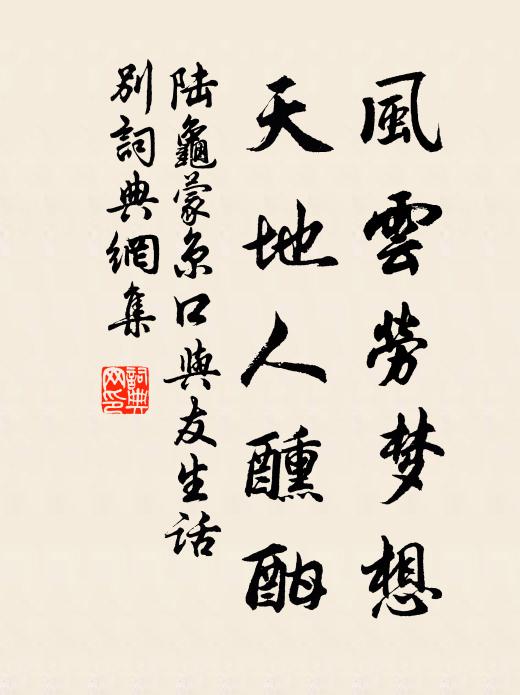 風雲勞梦想
天地人醺酣
陆龜蒙京口與友生話
别詞典網集
詞典
网印